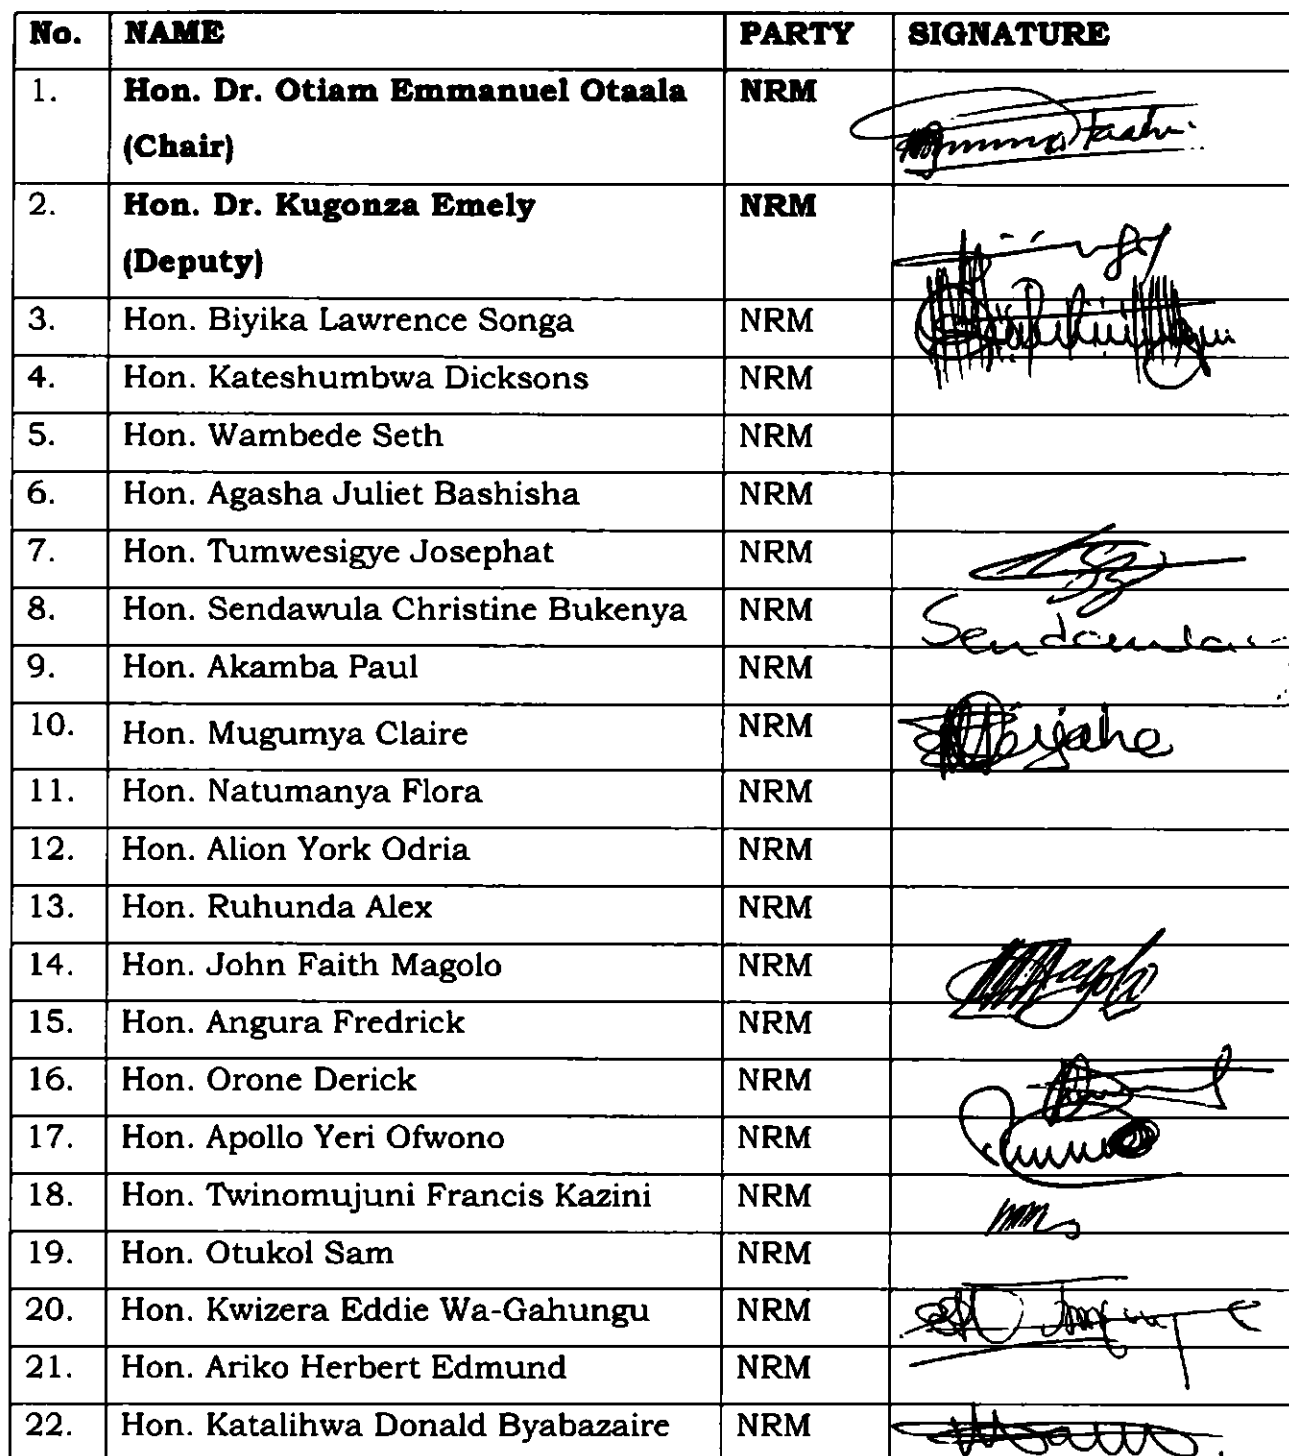 No. NAME PARTY SIGNATURE
1. Hon. Dr. Otiam Emmanuel Otaala NRM
(Chair)
2. Hon. Dr. Kugonza Emely NRM
(Deputy)
3. Hon. Biyika Lawrence Songa NRM
4. Hon. Kateshumbwa Dicksons NRM
5. Hon. Wambede Seth NRM
6. Hon. Agasha Juliet Bashisha NRM
7. Hon. Tumwesigye Josephat NRM
8. Hon. Sendawula Christine Bukenya NRM
9. Hon. Akamba Paul NRM
10. Hon. Mugumya Claire NRM
11. Hon. Natumanya Flora NRM
12. Hon. Alion York Odria NRM
13. Hon. Ruhunda Alex NRM
14. Hon. John Faith Magolo NRM
15. Hon. Angura Fredrick NRM
16. Hon. Orone Derick NRM
17. Hon. Apollo Yeri Ofwono NRM
18. Hon. Twinomujuni Francis Kazini NRM
19. Hon. Otukol Sam NRM
20. Hon. Kwizera Eddie Wa-Gahungu NRM
21. Hon. Ariko Herbert Edmund NRM
22. Hon. Katalihwa Donald Byabazaire NRM